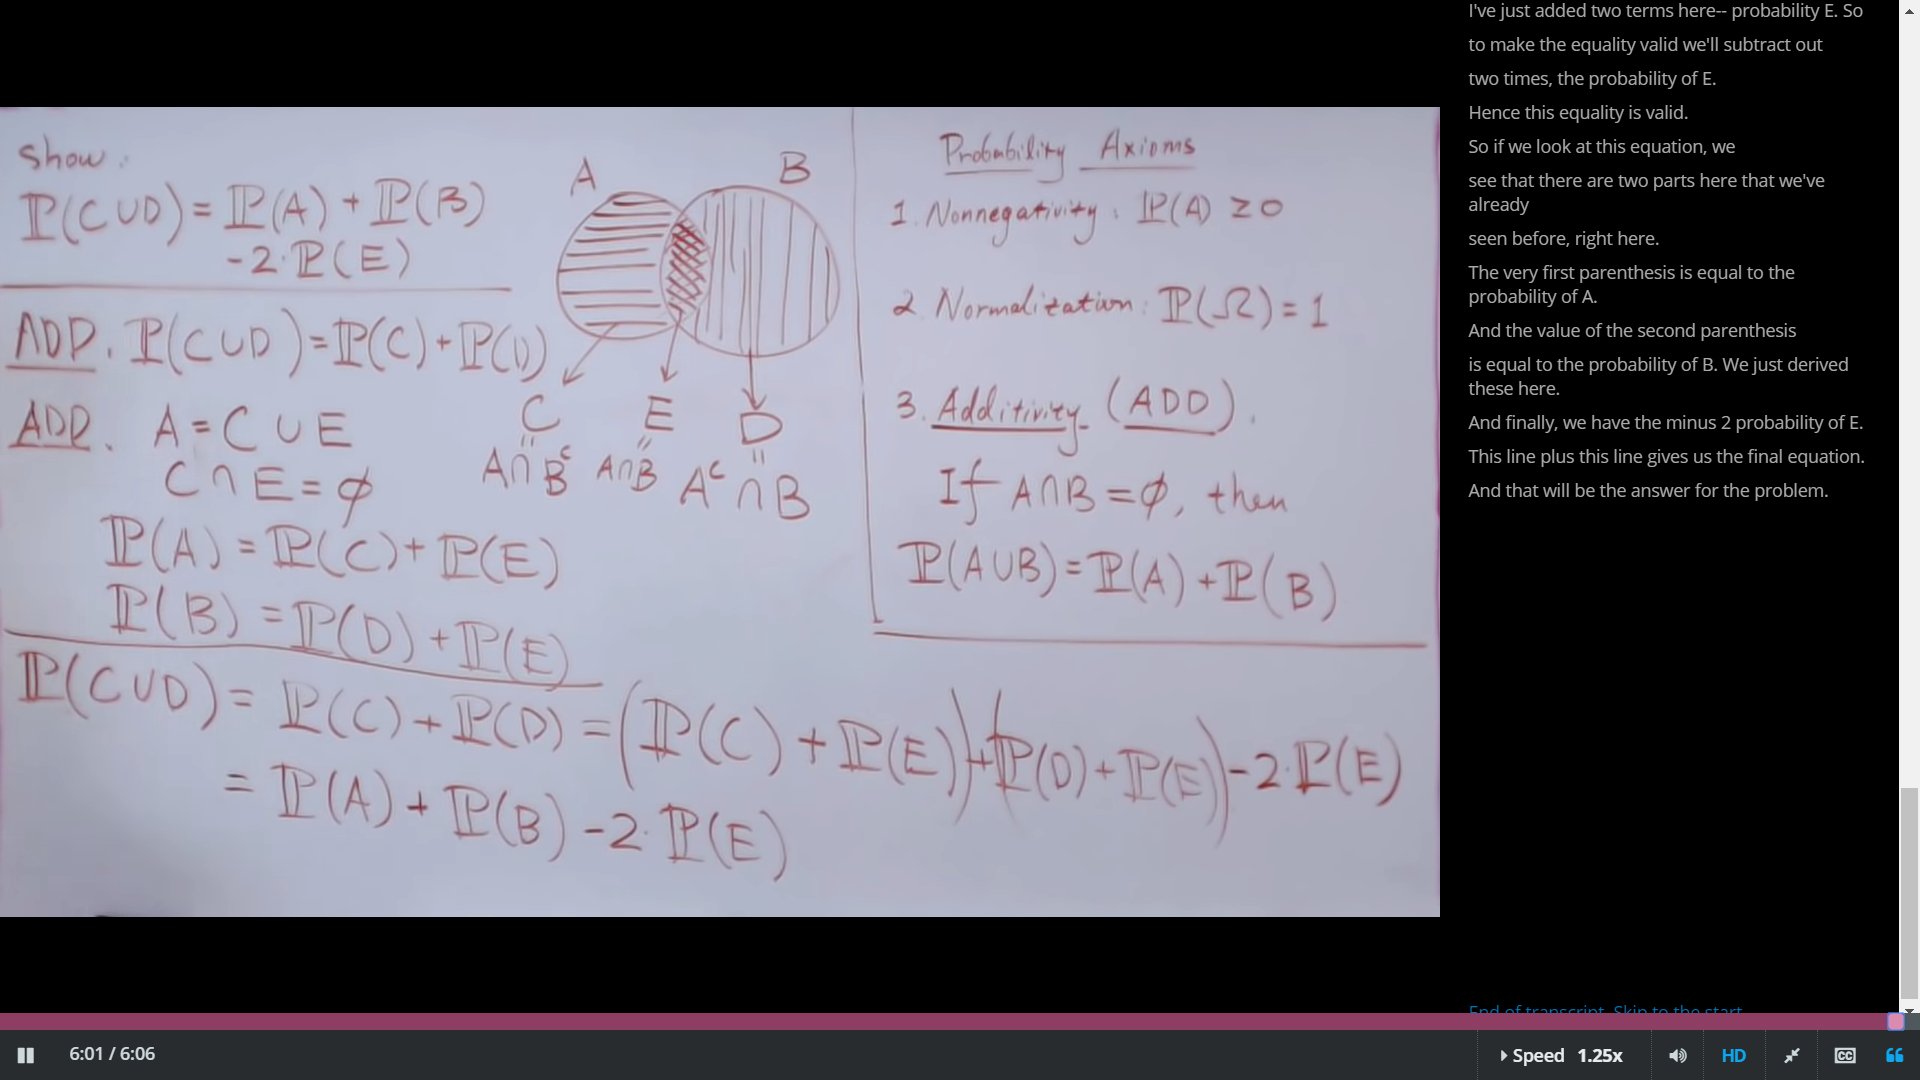 show:
ℙ(C∪D) = ℙ(A) + ℙ(B)
-2·ℙ(E)
ADD. ℙ(C∪D) = ℙ(C) + ℙ(D)
ADD. A = C ∪ E
C ∩ E = ∅
ℙ(A) = ℙ(C) + ℙ(E)
ℙ(B) = ℙ(D) + ℙ(E)
ℙ(C∪D) = ℙ(C) + ℙ(D) = (ℙ(C) + ℙ(E)) + (ℙ(D) + ℙ(E)) - 2·ℙ(E)
= ℙ(A) + ℙ(B) - 2·ℙ(E)
A B
C E D
= = =
A∩Bᶜ A∩B Aᶜ∩B
Probability Axioms
1. Nonnegativity: ℙ(A) ≥ 0
2. Normalization: ℙ(Ω) = 1
3. Additivity (ADD).
If A∩B = ∅, then
ℙ(A∪B) = ℙ(A) + ℙ(B)
I've just added two terms here-- probability E. So
to make the equality valid we'll subtract out
two times, the probability of E.
Hence this equality is valid.
So if we look at this equation, we
see that there are two parts here that we've
already
seen before, right here.
The very first parenthesis is equal to the
probability of A.
And the value of the second parenthesis
is equal to the probability of B. We just derived
these here.
And finally, we have the minus 2 probability of E.
This line plus this line gives us the final equation.
And that will be the answer for the problem.
End of transcript. Skip to the start.
6:01 / 6:06
Speed 1.25x
HD
CC